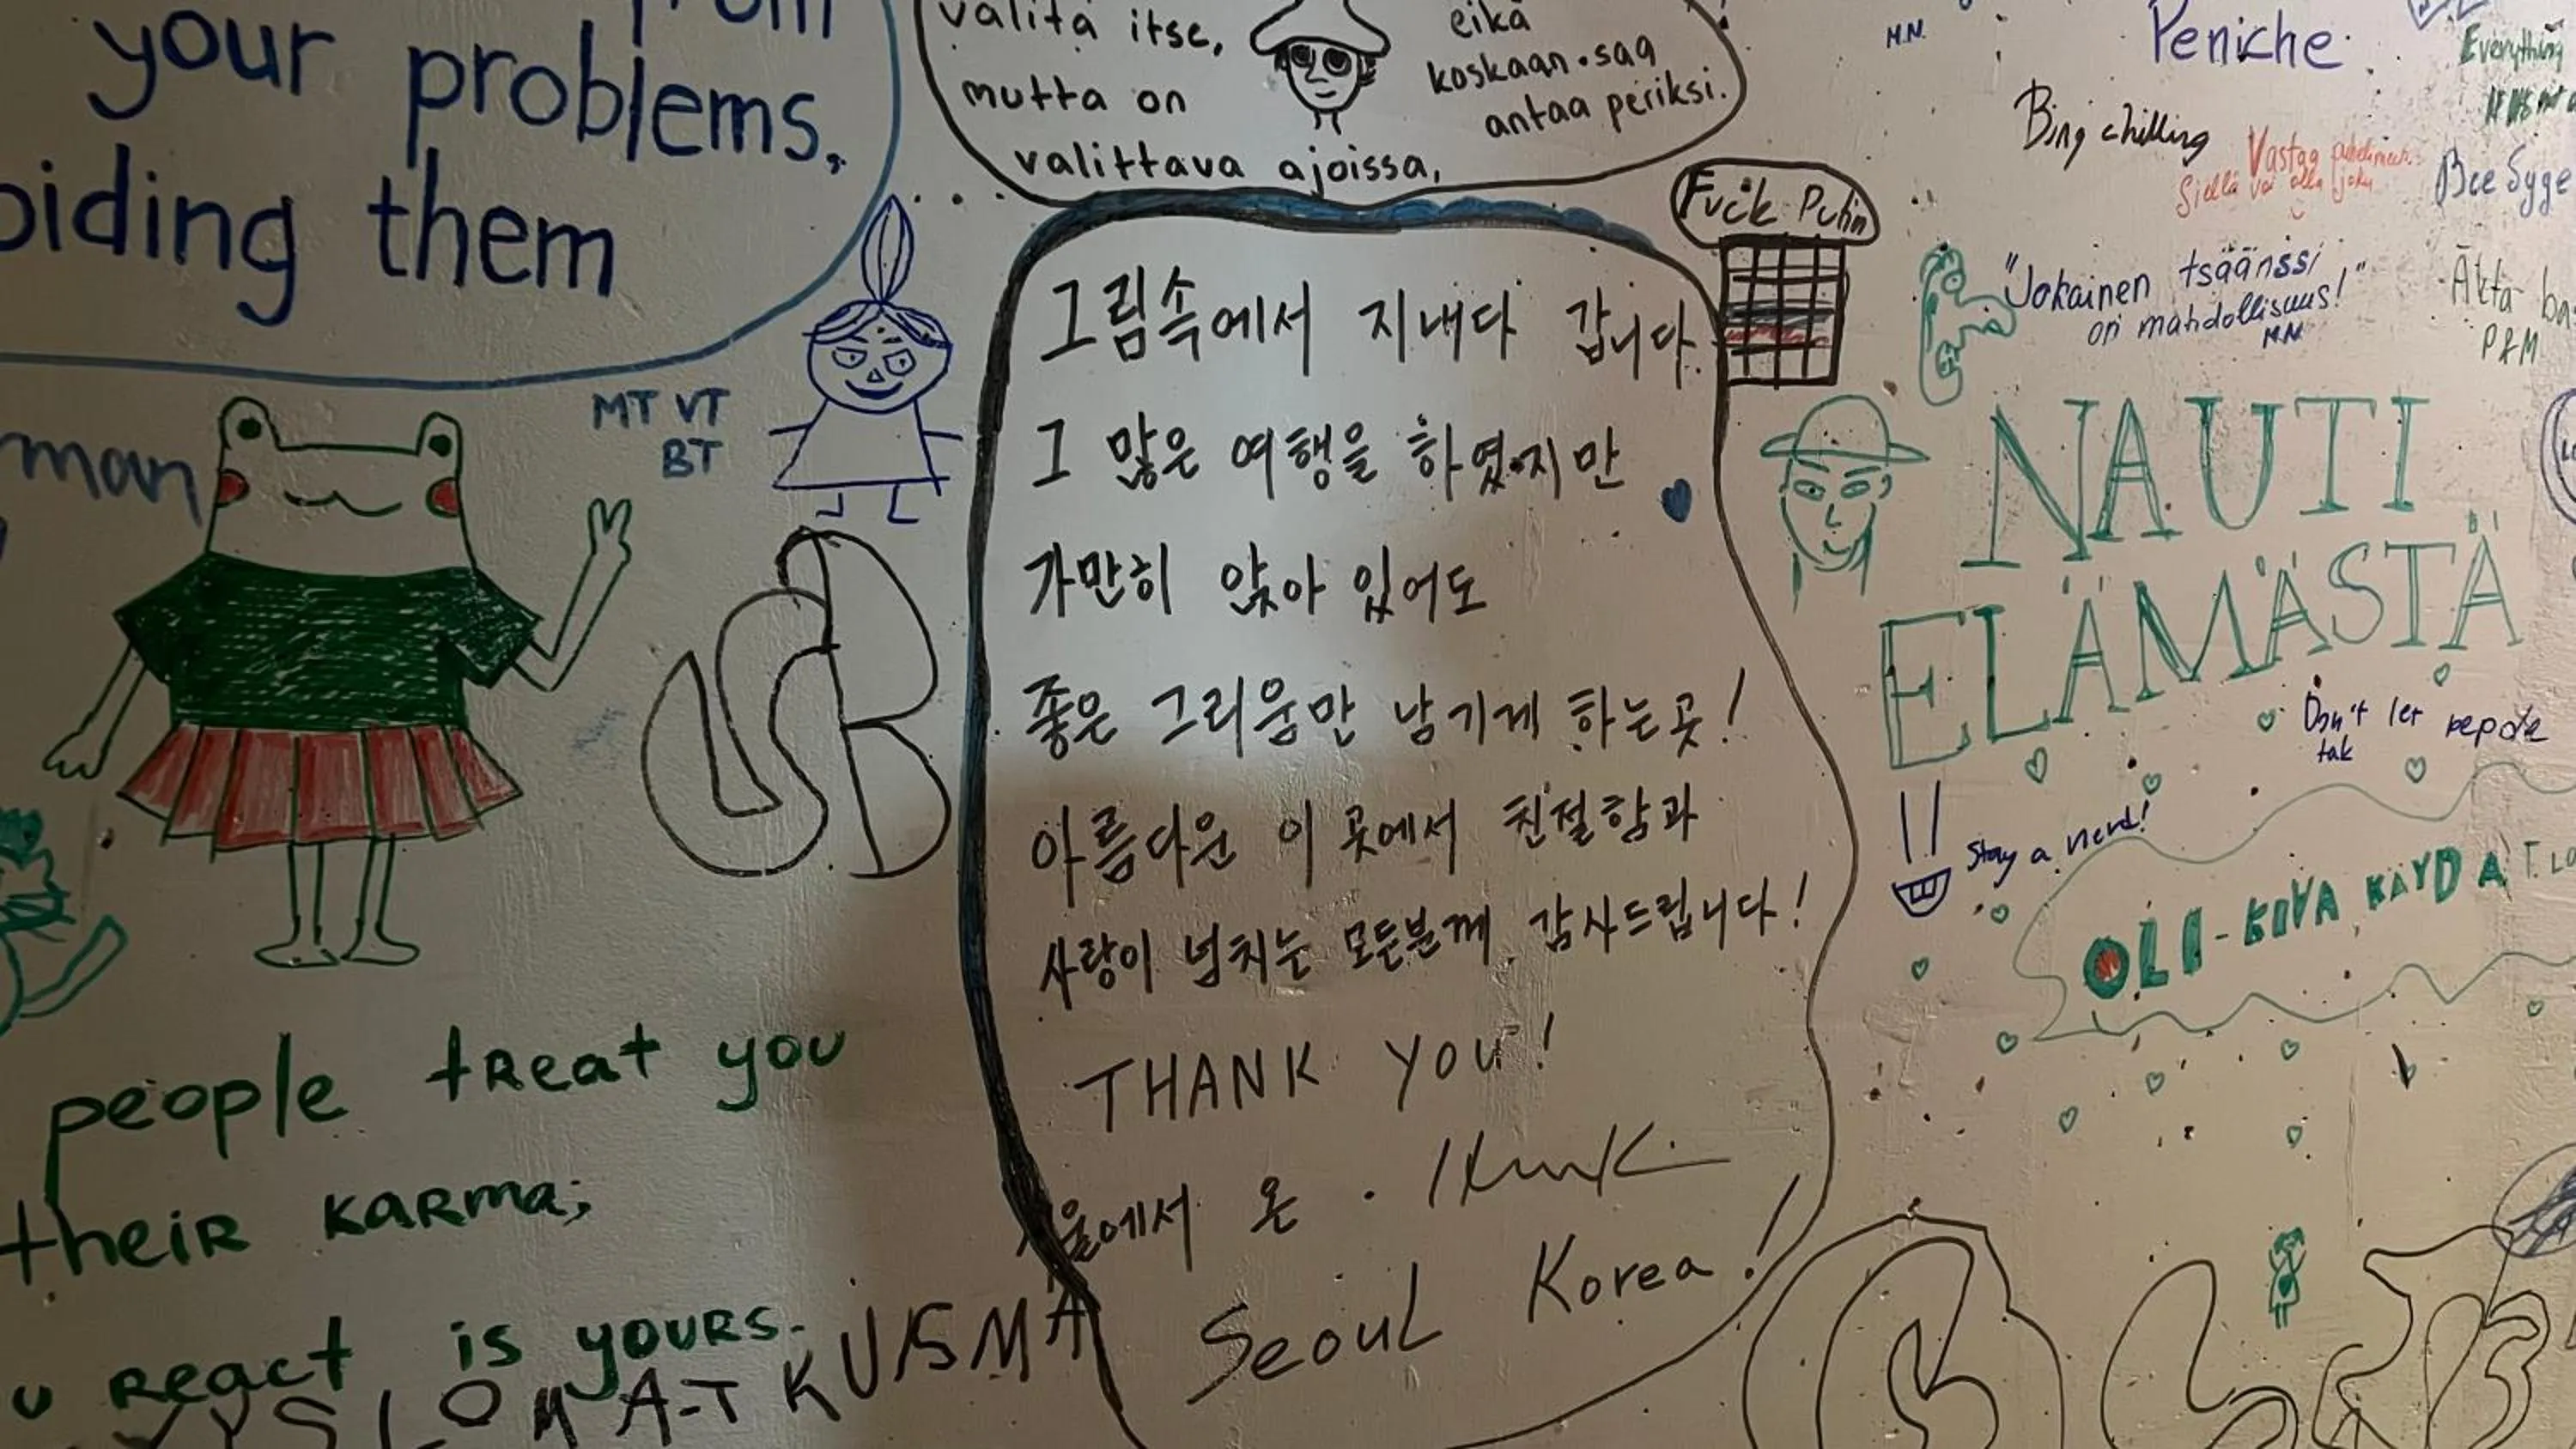 your problems,
them
man
MT VT
BT
people treat you
their karma;
react is yours.
KUISMA
valita itse,
mutta on
valittava ajoissa,
eikä
koskaan saa
antaa periksi.
Fuck Putin
그림속에서 지내다 갑니다.
그 많은 여행을 하였지만
가만히 앉아 있어도
좋은 그리움만 남기게 하는곳!
아름다운 이 곳에서 친절함과
사랑이 넘치는 모든분께 감사드립니다!
THANK YOU!
울에서 온
Seoul Korea!
M.N.
Peniche
Everything
Bing chilling
Vastaa
Siellä voi olla joku
"Jokainen tsäänssi
on mahdollisuus!"
M.N.
P&M
NAUTI
ELÄMÄSTÄ
Don't let
tak
Stay a nerd!
OLI-KIVA KÄYDÄ